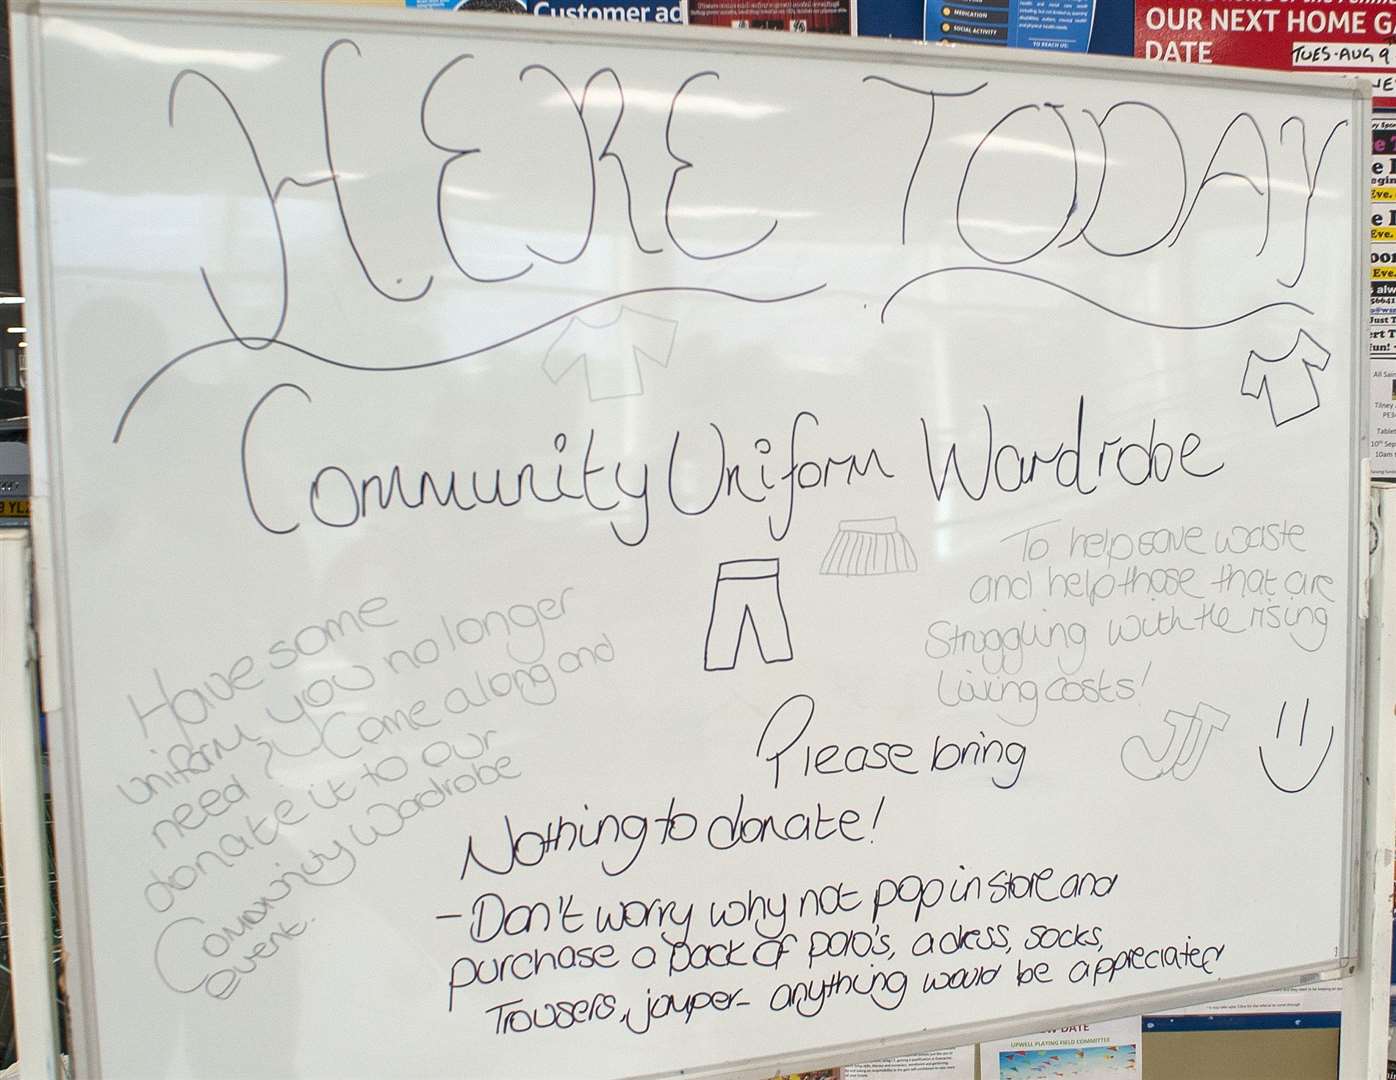 Customer ad
MEDICATION
SOCIAL ACTIVITY
TO REACH US:
OUR NEXT HOME GA
DATE
TUES-AUG 9
HERE TODAY
Community Uniform Wardrobe
To help save waste
and help those that are
Struggling with the rising
Living costs!
Have some
uniform you no longer
need? Come along and
donate it to our
Community Wardrobe
event.
Please bring
Nothing to donate!
- Don't worry why not pop in store and
purchase a pack of polo's, a dress, socks,
Trousers, jouper- anything would be appreciated
Eve.
Eve.
Eve.
Just T
fun!
All Sain
Tilney
PE3
Table
10th Sep
10am
DATE
UPWELL PLAYING FIELD COMMITTEE